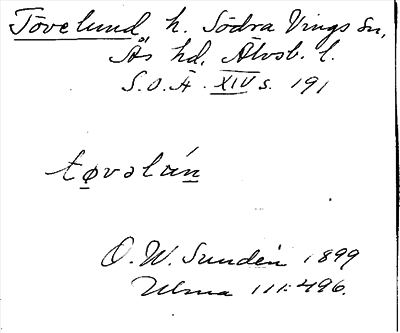 Tövelund h. Södra Vings sn,
Ås hd, Älvsb. l.
S.O.Ä. XIV s. 191
tøvəlún
O. W. Sundén 1899
Ulma 111:496.